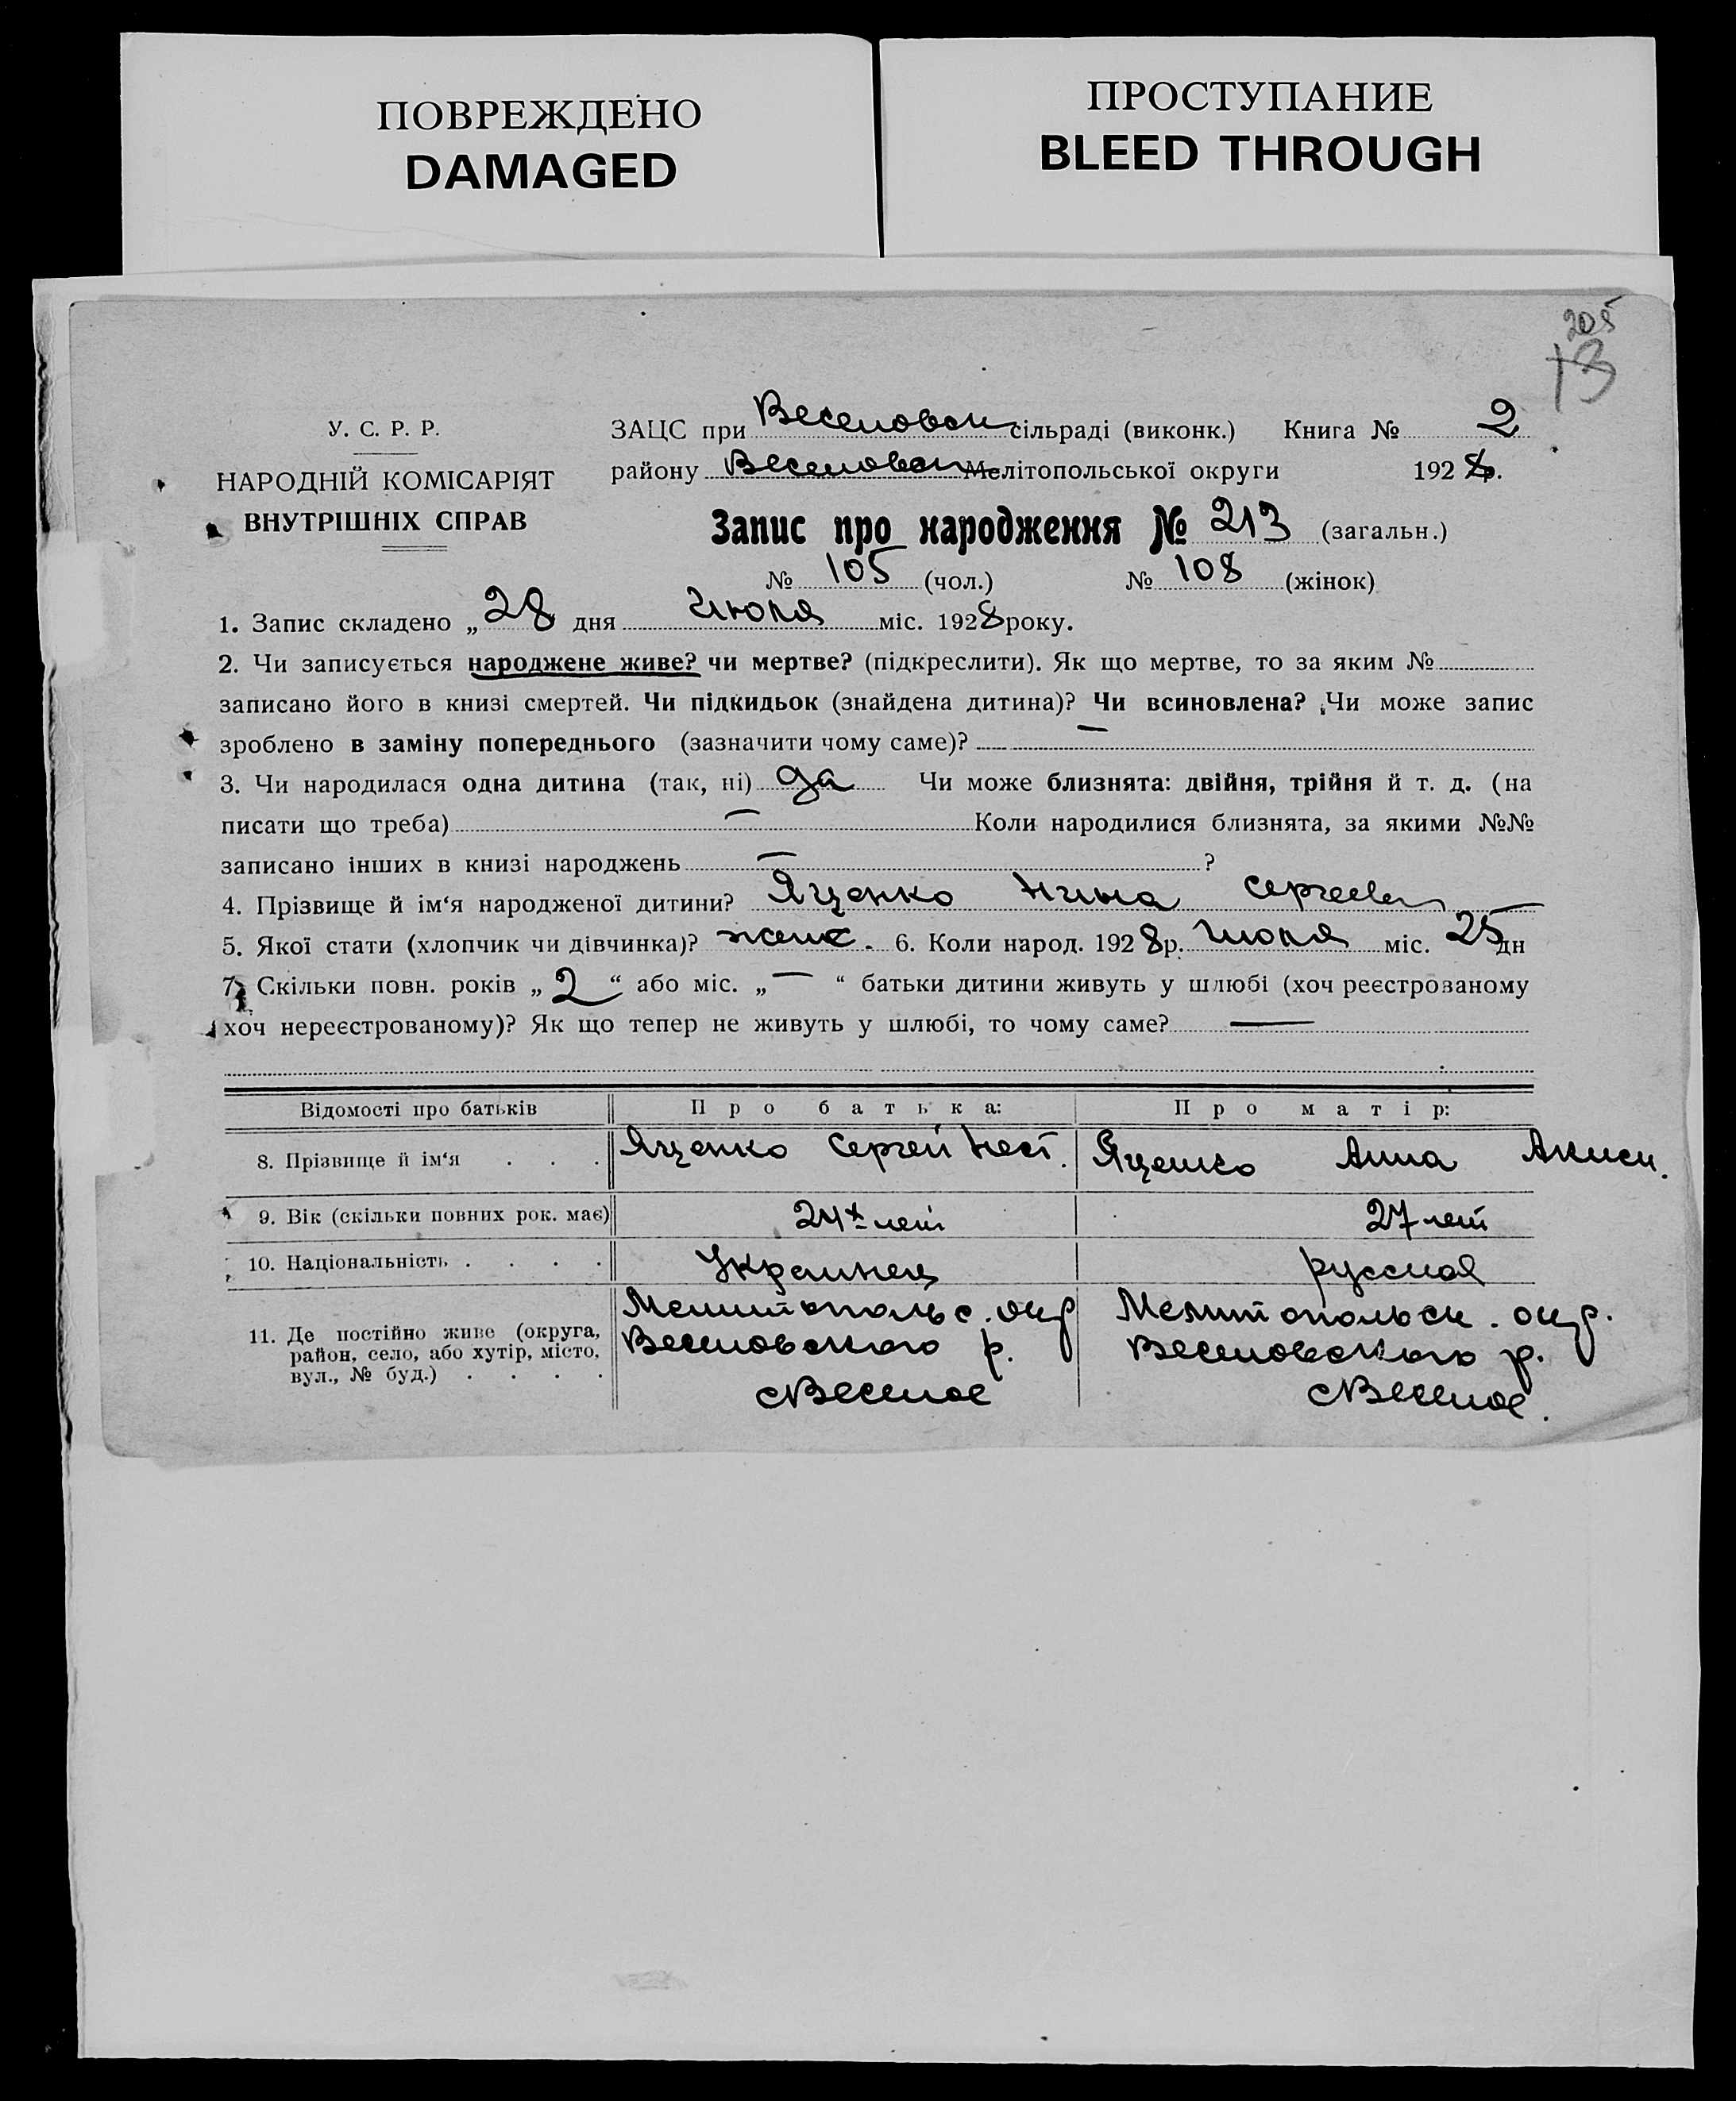 ПОВРЕЖДЕНО
DAMAGED
ПРОСТУПАНИЕ
BLEED THROUGH
205
13
У. С. Р. Р.
НАРОДНІЙ КОМІСАРІЯТ
ВНУТРІШНІХ СПРАВ
ЗАЦС при Веселовск сільраді (виконк.) Книга № 2
району Веселовск Мелітопольської округи 1928.
Запис про народження № 213 (загальн.)
№ 105 (чол.) № 108 (жінок)
1. Запис складено „ 28 дня Июля міс. 1928 року.
2. Чи записується народжене живе? чи мертве? (підкреслити). Як що мертве, то за яким №
записано його в книзі смертей. Чи підкидьок (знайдена дитина)? Чи всиновлена? Чи може запис
зроблено в заміну попереднього (зазначити чому саме)? —
3. Чи народилася одна дитина (так, ні) да Чи може близнята: двійня, трійня й т. д. (на
писати що треба) — Коли народилися близнята, за якими №№
записано інших в книзі народжень — ?
4. Прізвище й ім‘я народженої дитини? Яценко Нина Сергеевн
5. Якої стати (хлопчик чи дівчинка)? женс. 6. Коли народ. 1928 р. Июля міс. 25 дн
7. Скільки повн. років „ 2 “ або міс. „ — “ батьки дитини живуть у шлюбі (хоч реєстрованому
хоч нереєстрованому)? Як що тепер не живуть у шлюбі, то чому саме? —
Відомості про батьків Про батька: Про матір:
8. Прізвище й ім‘я . . . Яценко Сергей Нест. Яценко Анна Акиси.
9. Вік (скільки повних рок. має) 24х лет 27 лет
10. Національність . . . . Украинец русская
11. Де постійно живе (округа, район, село, або хутір, місто, вул., № буд.) . . . . Мелитопольс. окр Веселовского р. с Веселое Мелитопольск. окр. Веселовского р. с Веселое.